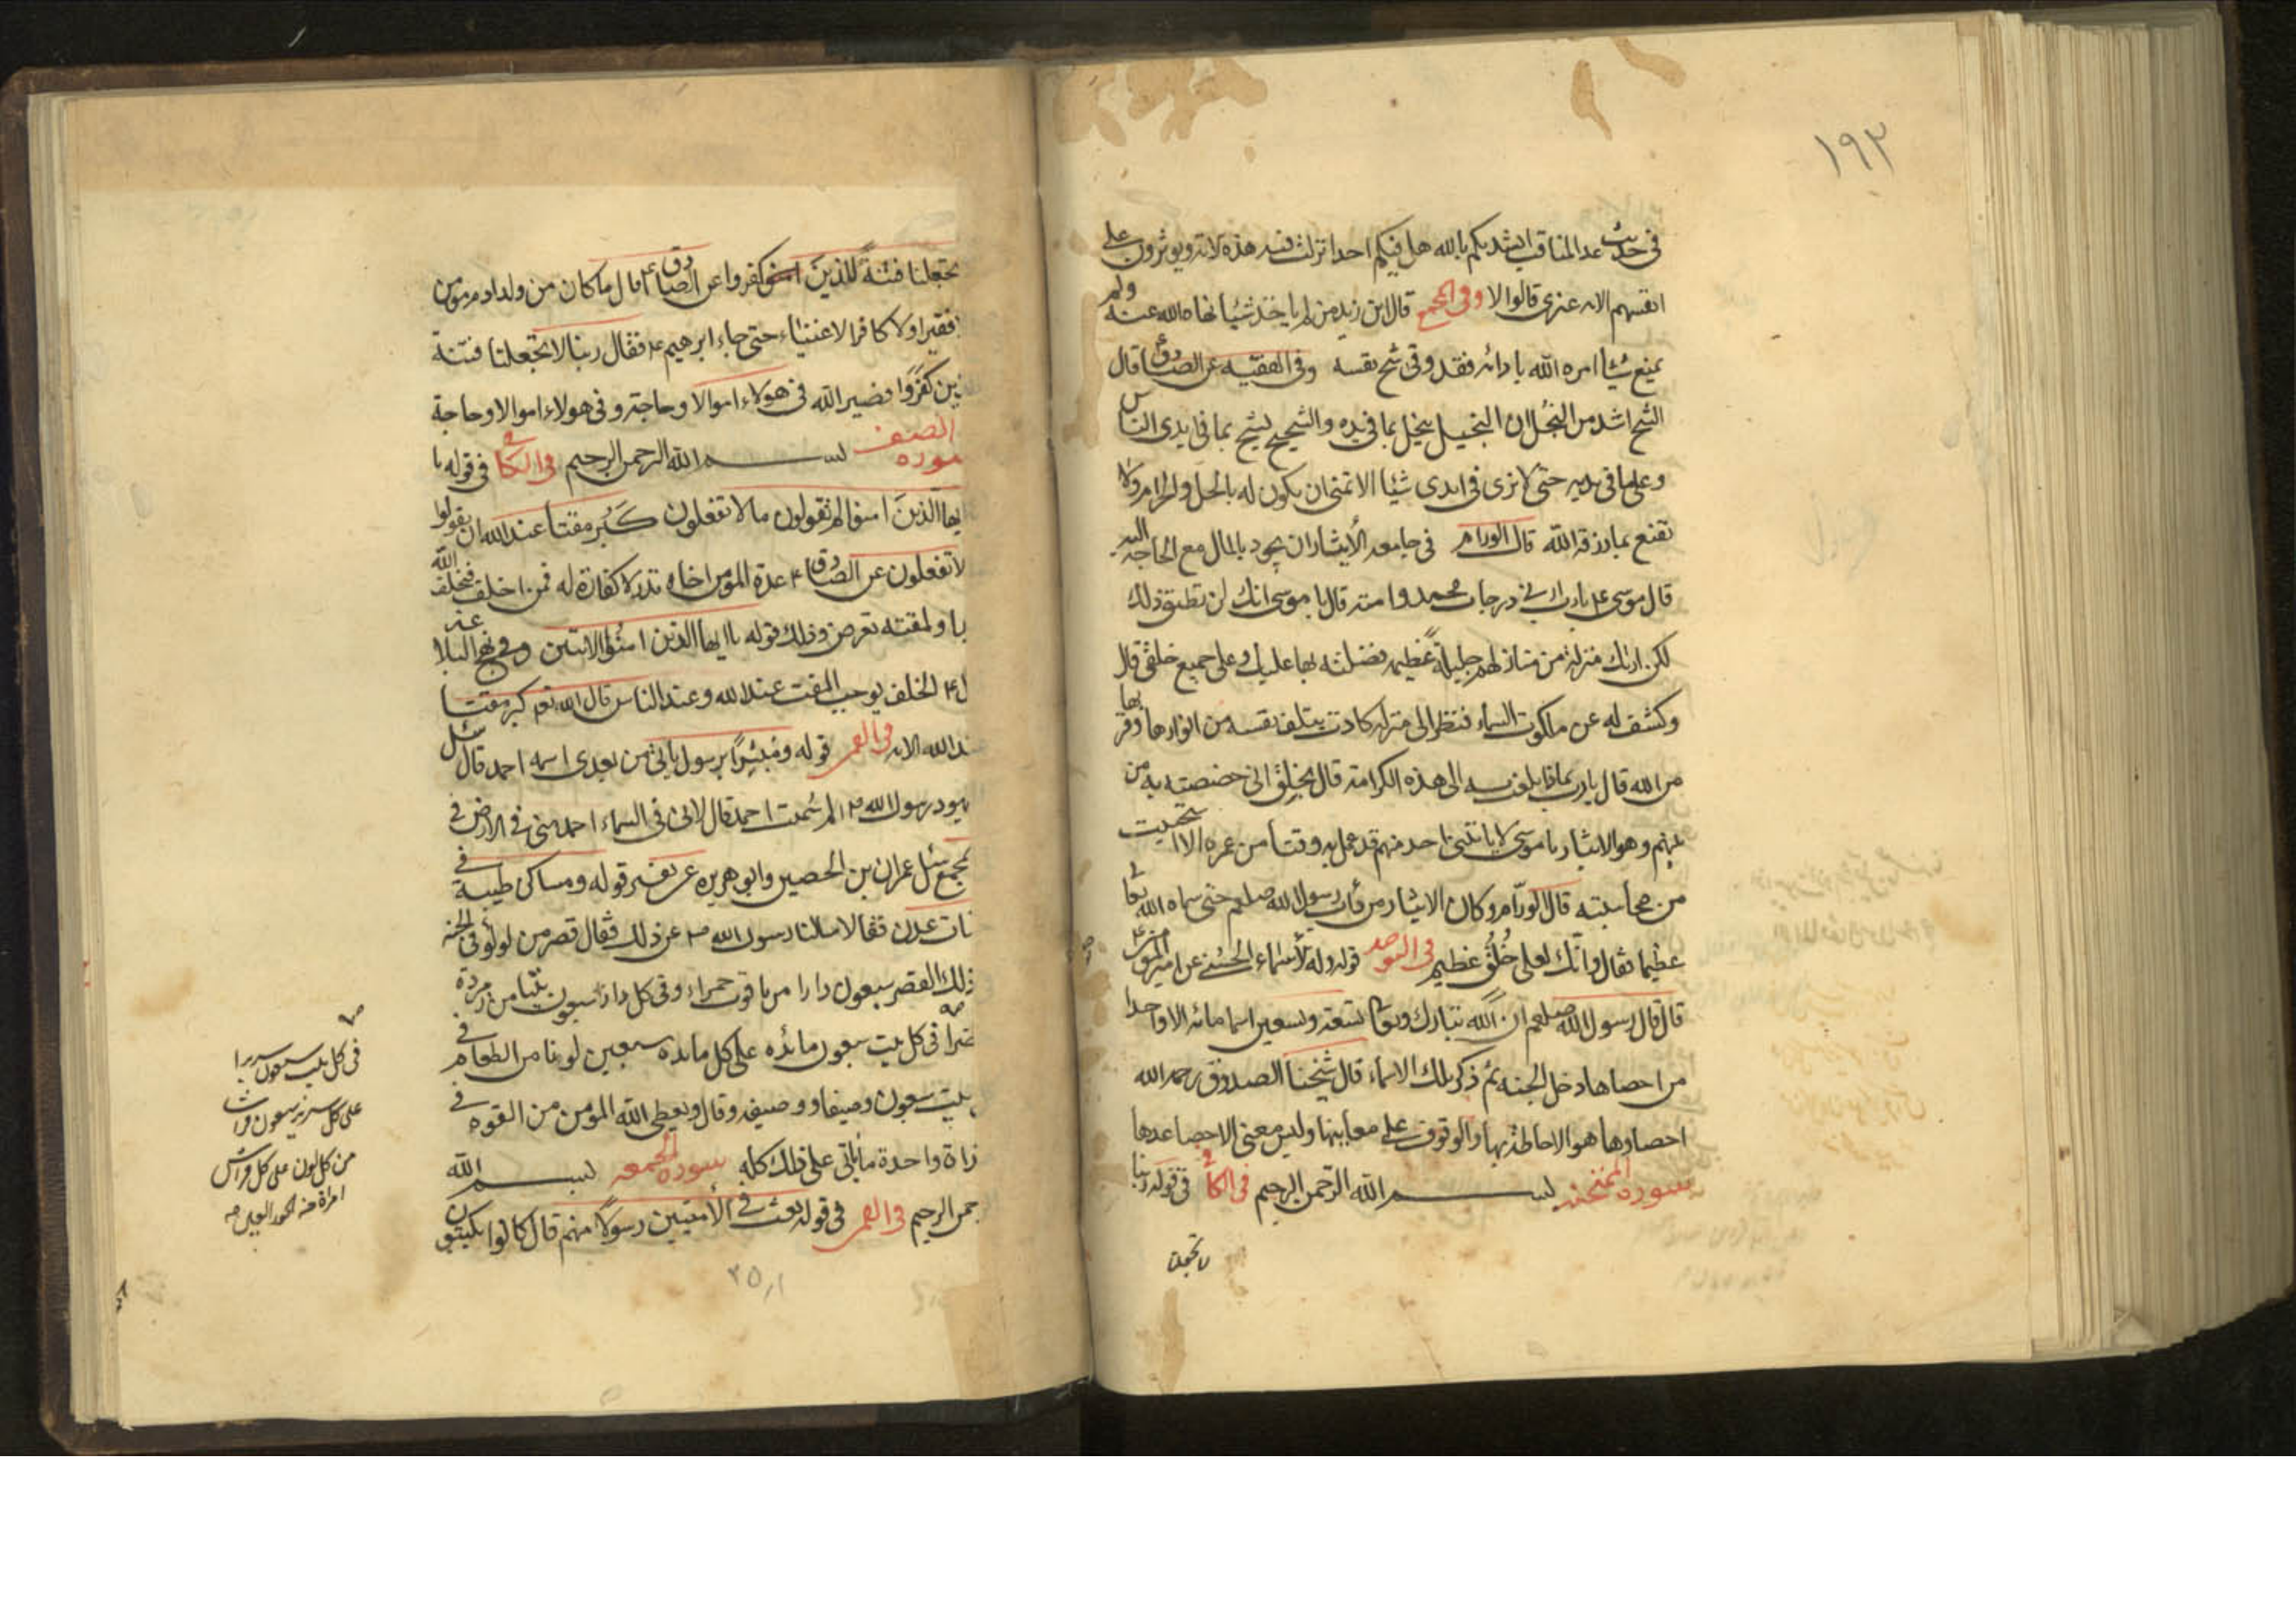 ١٩٣
في حديث عد المناقب انشدكم بالله هل فيكم احد انزلت فيه هذه الاية ويوثرون على
انفسهم الاية غيري قالوا لا وفي المجمع قال ابن زيد من لم ياخذ شيئا نهاه الله عنه ولم
يمنع شيئا امره الله بادائه فقد وقي شح نفسه وفي الفقيه عن الصادق قال
الشح اشد من البخل ان البخيل يبخل بما في يده والشحيح يشح بما في يدي الناس
وعلى ما في يديه حتى لا يرى في ايدي شيئا الا تمنى ان يكون له بالحل والحرام ولا
تقنع بما رزقه الله قال الورام في جامعه الايثار ان يجود بالمال مع الحاجة اليه
قال موسى ع يا رب ارني درجات محمد وامته قال يا موسى انك لن تطيق ذلك
لكن اريك منزلة من منازلهم جليلة عظيمة فضلته بها عليك وعلى جميع خلقي قال
وكشف له عن ملكوت السماء فنظر الى منزلة كادت يتلف نفسه من انوارها وقربها
من الله قال يا رب بماذا بلغت به الى هذه الكرامة قال بخلق اني خصصته به من
بينهم وهو الايثار يا موسى لا ياتيني احد منهم قد عمل به وقتا من عمره الا استحييت
من محاسبته قال الورام وكان الايثار من داب رسول الله صلعم حتى سماه الله تعا
عظيما فقال وانك لعلى خلق عظيم في التوحيد قوله وله الاسماء الحسنى عن امير المؤمنين ع
قال قال رسول الله صلعم ان الله تبارك وتعا تسعة وتسعين اسما مائة الا واحدا
من احصاها دخل الجنة ثم ذكر تلك الاسماء قال شيخنا الصدوق رحمه الله
احصاوها هو الاحاطة بها والوقوف على معانيها وليس معنى الاحصا عدها
سورة الممتحنه بسم الله الرحمن الرحيم في الكافي في قوله ربنا
لا تجعلنا
تجعلنا فتنة للذين كفروا عن الصادق ع قال ما كان من ولد ادم مومن
فقيرا ولا كافر الا غنيا حتى جاء ابرهيم ع فقال ربنا لا تجعلنا فتنة
ين كفروا فصير الله في هولاء اموالا وحاجة وفي هولاء اموالا وحاجة
سورة الصف بسم الله الرحمن الرحيم في الكافي في قوله يا
ايها الذين امنوا لم تقولون ما لا تفعلون كبر مقتا عند الله ان تقولوا
لا تفعلون عن الصادق ع عدة المؤمن اخاه نذر لا كفارة له فمن اخلف فبخلف الله
با ولمقته تعرض وذلك قوله يا ايها الذين امنوا الايتين وفي نهج البلاغه
ل ع الخلف يوجب المقت عند الله وعند الناس قال الله تع كبر مقتا
ند الله الاية في القمي قوله ومبشرا برسول ياتي من بعدي اسمه احمد قال سئل
يهود رسول الله ص لم سميت احمد قال لاني في السماء احمد مني في الارض في
لمجمع سئل عمران بن الحصين وابو هريره عن تفسير قوله ومساكن طيبة في
نات عدن فقالا سالنا رسول الله ص عن ذلك فقال قصر من لولو في الجنه
ذلك القصر سبعون دارا من ياقوت حمراء وفي كل دار سبعون بيتا من زمردة
ضرا في كل بيت سبعون مائده على كل مائده سبعين لونا من الطعام في
بيت سبعون وصيفا ووصيفه وقال ويعطي الله المومن من القوه في
غداة واحدة ما ياتي على ذلك كله سورة الجمعه بسم الله
حمن الرحيم في القمي في قوله بعث في الاميين رسولا منهم قال كانوا يكتبون
في كل بيت سبعون سريرا
على كل سرير سبعون فراشا
من كل لون على كل فراش
امراة من الحور العين صه